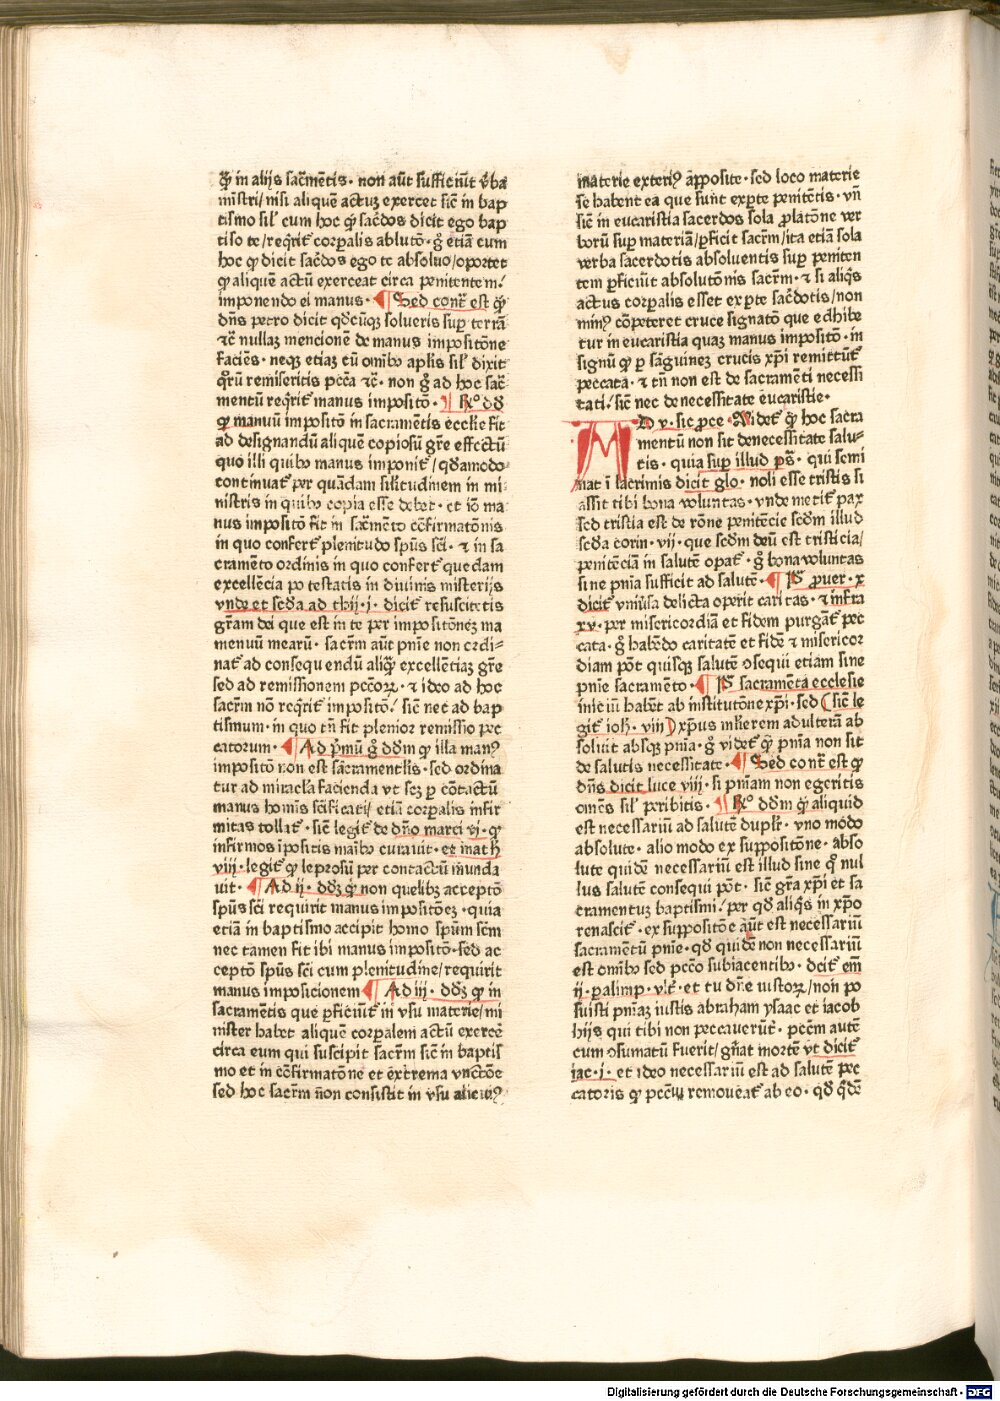 qͥ in alijs sacͬmētis · non aūt sufficiūt v̄ba
mīstri / nisi aliquē actuꝫ exercet sic̄ in bap
tismo sil̄ cum hoc qͥ sac̄dos dicit ego bap
tiso te / req̄rit᷑ corꝑalis ablutō · g̊ etiā cum
hoc ꝙ dicit sac̄dos ego te absoluo / oportet
ꝙ aliquē actū exerceat circa penitentem /
imponendo ei manus · ¶ Sed contͬ est ꝙ
dn̄s petro dicit qd̄cūqꝫ solueris suꝑ terrā
⁊c̄ nullaꝫ mencionē de manus impositōne
faciēs · neqꝫ etiaꝫ cū om̄ibꝰ aplis sil̄ dixit
qͦrū remiseritis pc̄cā ⁊c̄ · non g̊ ad hoc sac̄
mentū req̄rit᷑ manus impositō · ¶ R̊ dd̄
ꝙ manuū impositō in sacramētis ecclīe fit
ad designandū aliquē copiosū gr̄e effectū
quo illi quibꝰ manus imponit᷑ / qd̄amodo
continuat᷑ per quādam silitudinem in mi
nistris in quibꝰ copia esse debet · et iō ma
nus impositō fit in sac̄mēto cōfirmatōnis
in quo confert᷑ plenitudo spūs sc̄i · ⁊ in sa
cramēto ordinis in quo confert᷑ quedam
excellēcia po testatis in diuinis misterijs
vnde et sc̄da ad thij · j · dicit᷑ resuscitetis
gr̄am dei que est in te per impositōneꝫ ma
menuū mearū · sacr̄m aūt pnīe non ordi⸗
nat᷑ ad consequendū aliqͣ excellētiaꝫ gr̄e
sed ad remissionem pcc̄oꝝ · ⁊ ideo ad hoc
sacr̄m nō req̄rit᷑ impositō / sic̄ nec ad bap
tismum · in quo tn̄ fit plenior remissio pec
catorum · ¶ Ad pͥmū g̊ dd̄m ꝙ illa manꝰ
impositō non est sacramentl̄is · sed ordina
tur ad miracl̄a facienda vt scꝫ ꝑ cōtactū
manus homīs scīficati / etiā corꝑalis infir
mitas tollat᷑ · sic̄ legit᷑ de dn̄o marci vj · ꝙ
infirmos īpositis manibꝰ curauit · et math
viii · legit᷑ ꝙ leprosū per contactū mūda
uit · ¶ Ad ij · dd̄ꝫ ꝙ non quelibꝫ acceptō
spūs sc̄i requirit manus impositōeꝫ · quia
etiā in baptismo accipit homo spūm scm̄
nec tamen fit ibi manus impositō · sed ac
ceptō spūs sc̄i cum plenitudine / requirit
manus imposicionem ¶ Ad iij · dd̄ꝫ ꝙ in
sacramētis que ꝑficiūt᷑ in vsu materie / mi
nister habet aliquē corꝑalem actū exercē
circa eum qui suscipit sacr̄m sic̄ in baptis
mo et in cōfirmatōne et extrema vnctōe
sed hoc sacr̄m nōn consistit in vsu alicuiꝰ
materie exteriꝰ apposite · sed loco materie
se habent ea que sunt ex ꝑte penitētis · vn̄
sic̄ in eucaristia sacerdos sola ꝓlatōne ver
borū suꝑ materiā / ꝑficit sacr̄m / ita etiā sola
verba sacerdotis absoluentis suꝑ peniten
tem ꝑficiūt absolutōnis sacr̄m · ⁊ si aliqͥs
actus corꝑalis esset ex ꝑte sac̄dotis / non
minꝰ cōpeteret cruce signatō que edhibe
tur in eucaristia quaꝫ manus impositō · in
signū ꝙ ꝑ sāguineꝫ crucis xp̄i remittūt᷑
peccata · ⁊ tn̄ non est de sacramēti necessi
tati / sic̄ nec de necessitate eucaristie ·
AD v · sic ꝓce · Videt᷑ ꝙ hoc sacra
mentū non sit denecessitate salu⸗
tis · quia suꝑ illud ps̄ · qui semi
nāt ī lacrimis dicit glo · noli esse tristis si
assit tibi bona voluntas · vnde metit᷑ pax
sed tristia est de rōne penitēcie scd̄m illud
sc̄da corin · vij · que scd̄m deū est tristicia /
penitēciā in salutē opat᷑ · g̊ bona voluntas
sine pn̄ia sufficit ad salutē · ¶ Pͣ ꝓuer · x
dicit᷑ vniūsa delicta operit caritas · ⁊ infra
xv · per misericordiā et fidem purgāt᷑ pec
cata · g̊ habēdo caritatē et fidē ⁊ misericor
diam pōt quisqꝫ salutē ↄsequi etiam sine
pnīe sacramēto · ¶ Pͣ sacramēta ecclesie
iniciū habēt ab institutōne xp̄i · sed (sic̄ le
git᷑ ioh̄ · viij) xp̄us ml̄ierem adulterā ab
soluit absqꝫ pnīa · g̊ videt᷑ ꝙ pnīa non sit
de salutis necessitate · ¶ Sed contͬ est ꝙ
dn̄s dicit luce viij · si pn̄iam non egeritis
omēs sil̄ ꝑibitis · ¶ R̊ dd̄m ꝙ aliquid
est necessariū ad salutē duplr̄ · vno modo
absolute · alio modo ex suppositōne · abso
lute quidē necessariū est illud sine qͦ nul
lus salutē consequi pōt · sic̄ gr̄a xp̄i et sa
cramentuꝫ baptismi / per qd̄ aliqͥs in xp̄o
renascit᷑ · ex suppositōe aūt est necessariū
sacramētū pnīe · qd̄ quidē non necessariū
est om̄ibꝰ sed pcc̄o subiacentibꝰ · dcīt᷑ em̄
ij · ꝑalimp · vlt᷑ · et tu dn̄e iustoꝝ / non po
suisti pnīaꝫ iustis abraham ysaac et iacob
hijs qui tibi non peccauerūt᷑ · pcc̄m autē
cum ↄsumatū fuerit / gn̄at mortē vt dicit᷑
iac · j · et ideo necessariū est ad salutē pec
catoris ꝙ pcc̄m remoueat᷑ ab eo · qd̄ qͥdē
Digitalisierung gefördert durch die Deutsche Forschungsgemeinschaft - DFG